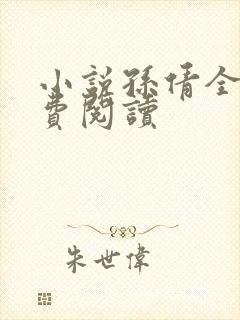 小説孫倩全
費閱讀
朱世偉